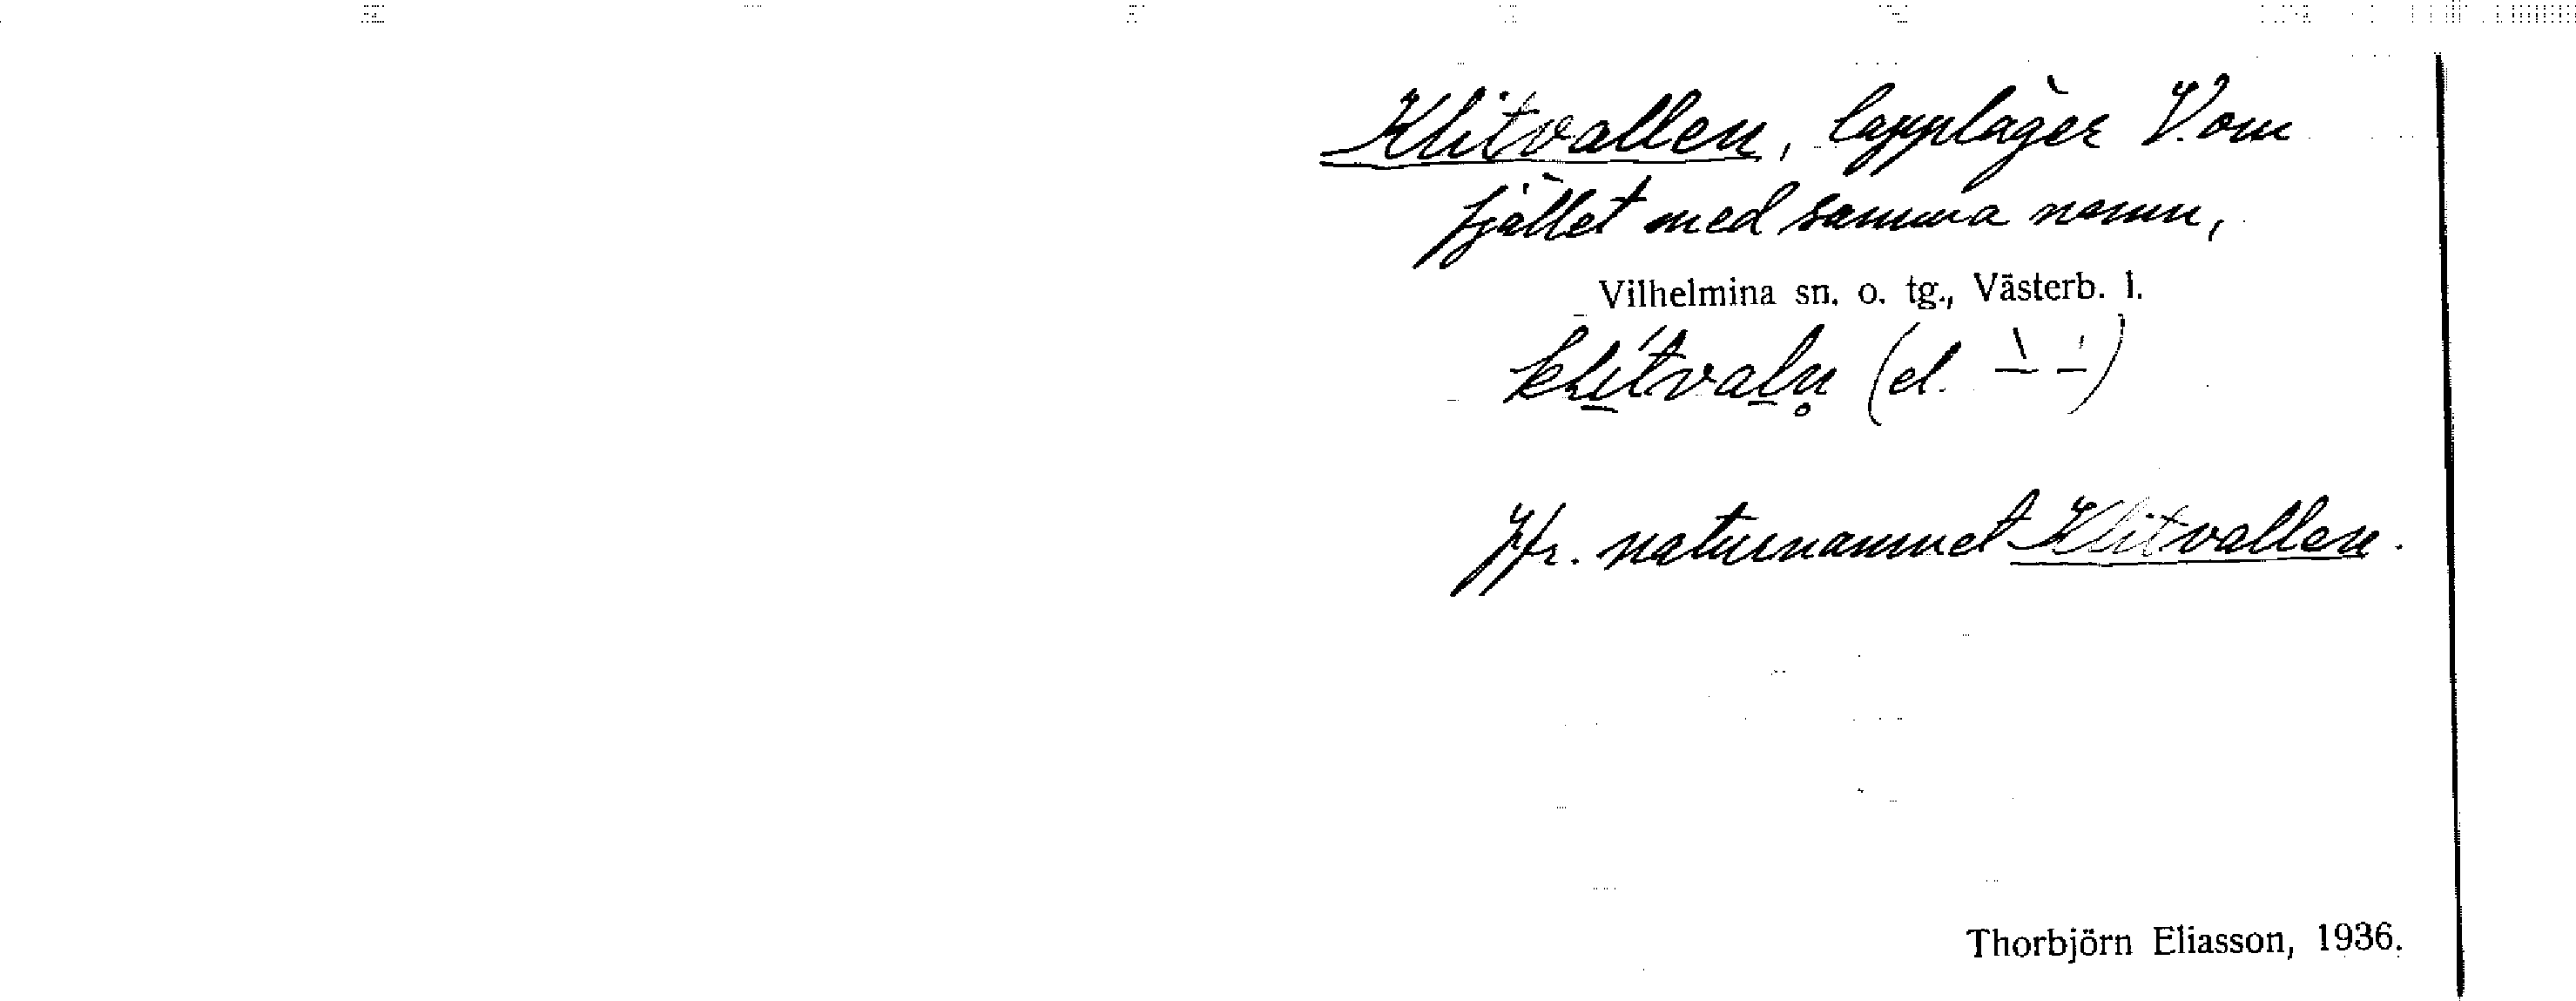 Klitvallen, lappläger V. om
fjället med samma namn,
Vilhelmina sn. o. tg., Västerb. l.
klítvaln̥ (el. \ ')
Jfr. naturnamnet Klitvallen.
Thorbjörn Eliasson, 1936.